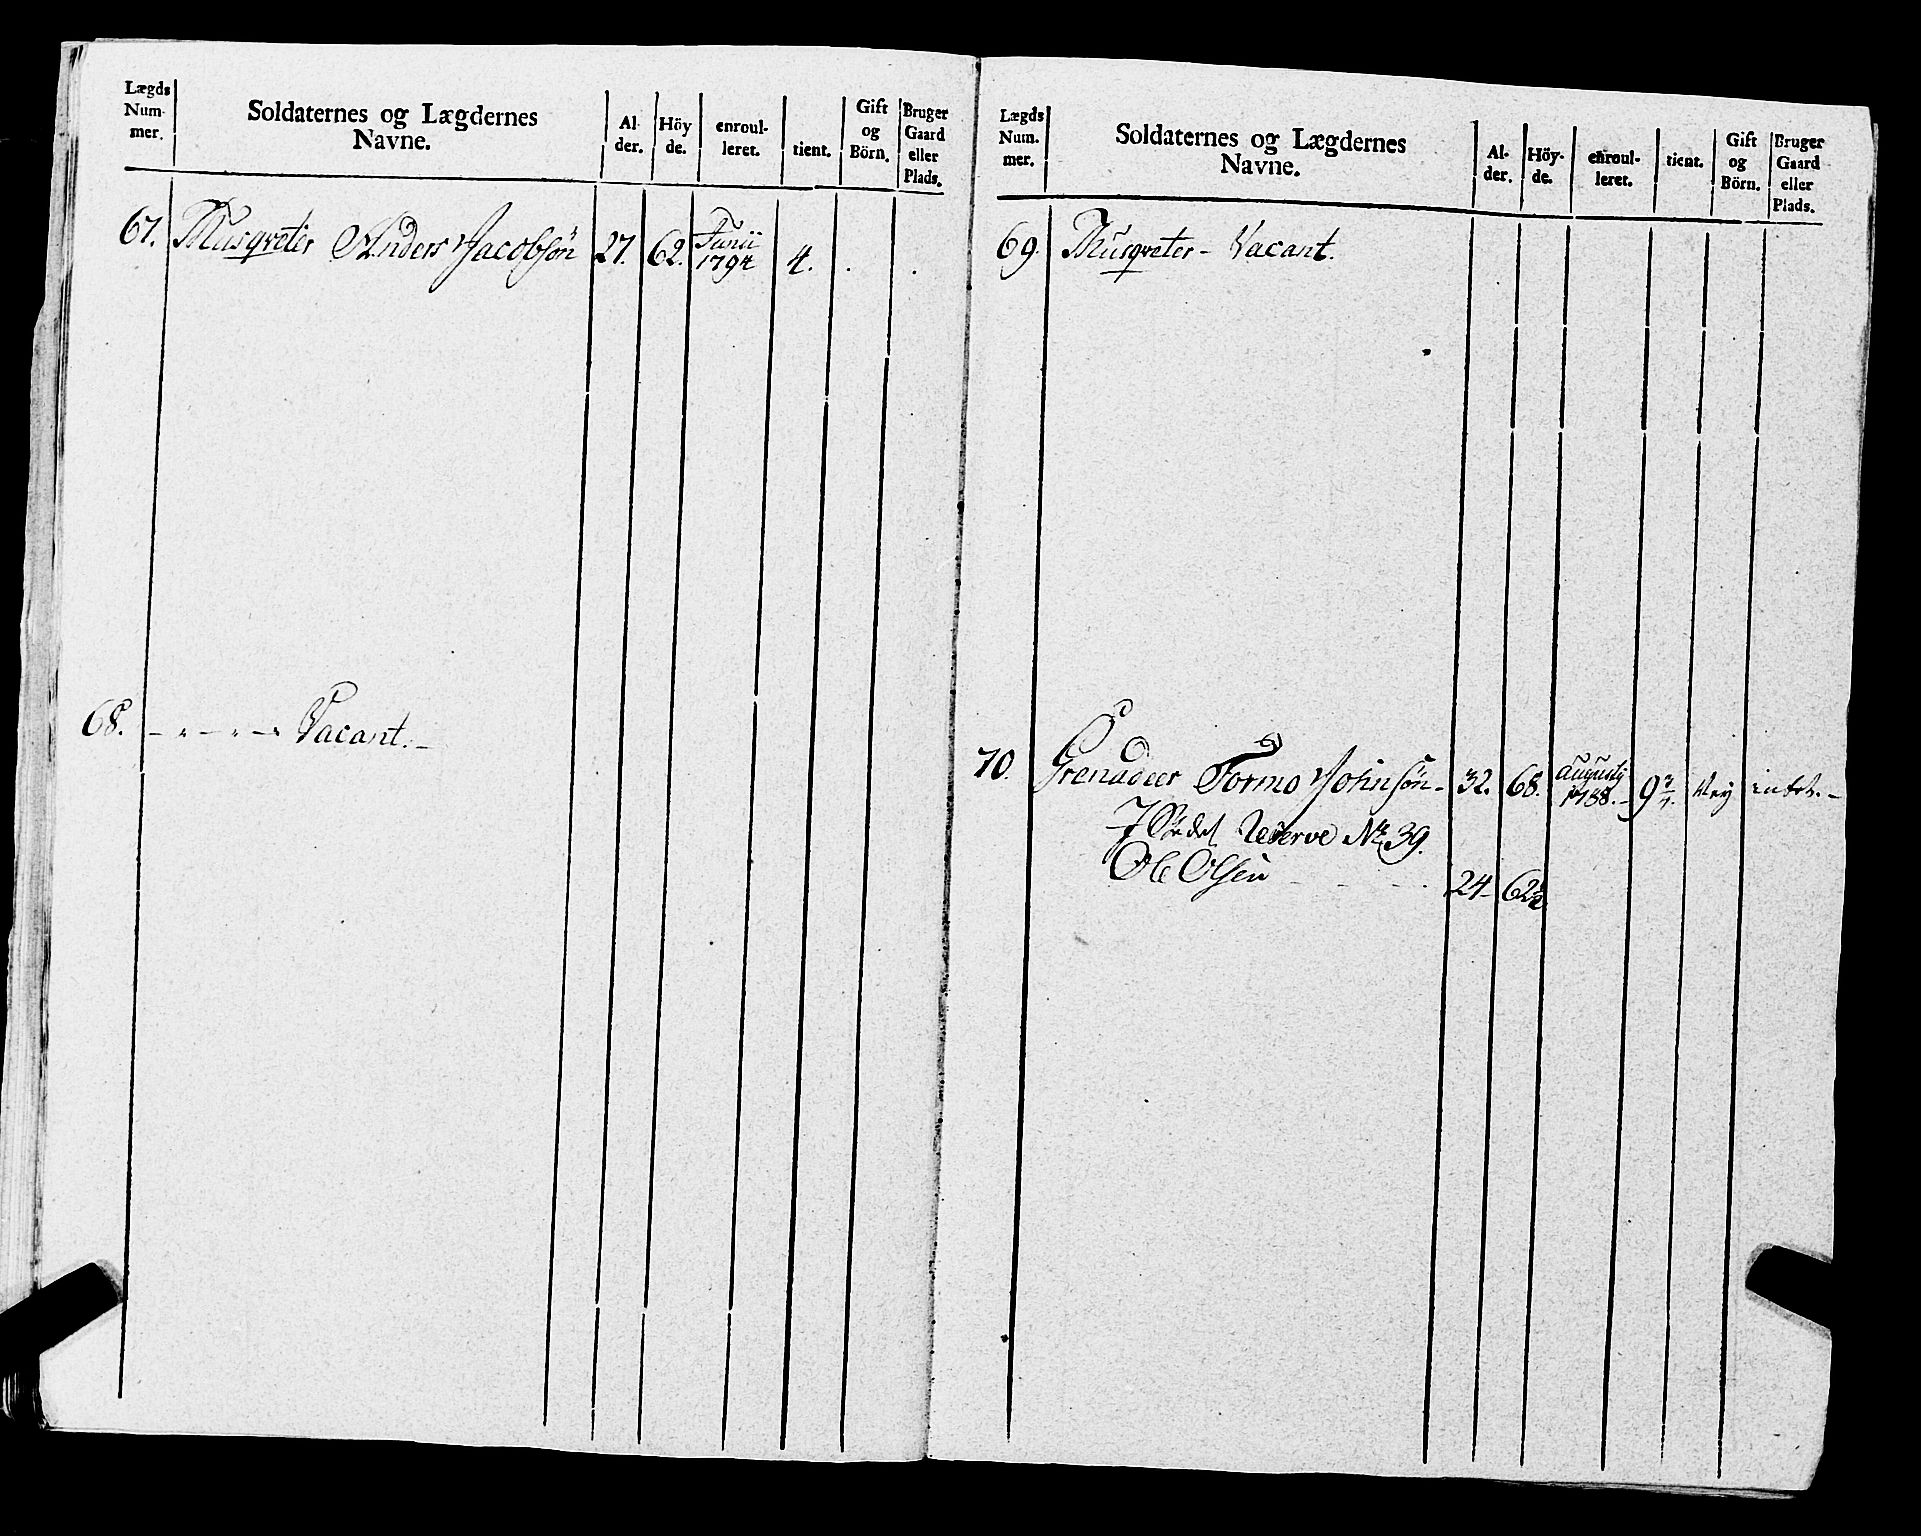 Lægds Num- mer.
Soldaternes og Lægdernes Navne.
Al- der.
Höy de.
enroul- leret.
tient.
Gift og Börn.
Bruger Gaard eller Plads.
67. Musqvetér Anders Jacobsön 27. 62. Junii 1794 4. . .
68. - " - " - " Vacant. -
Lægds Num. mer.
Soldaternes og Lægdernes Navne.
Al- der.
Höy- de.
enroul- leret.
tient.
Gift og Börn.
Bruger Gaard eller Plads.
69. Musqveter - Vacant.
70. Grenadeer Tormo Johnsön - 32. 68. Augusty 1788. - 9 3/4. Ney intet. -
Reserve No 39.
Ole Olsen - - - - 24 - 62½